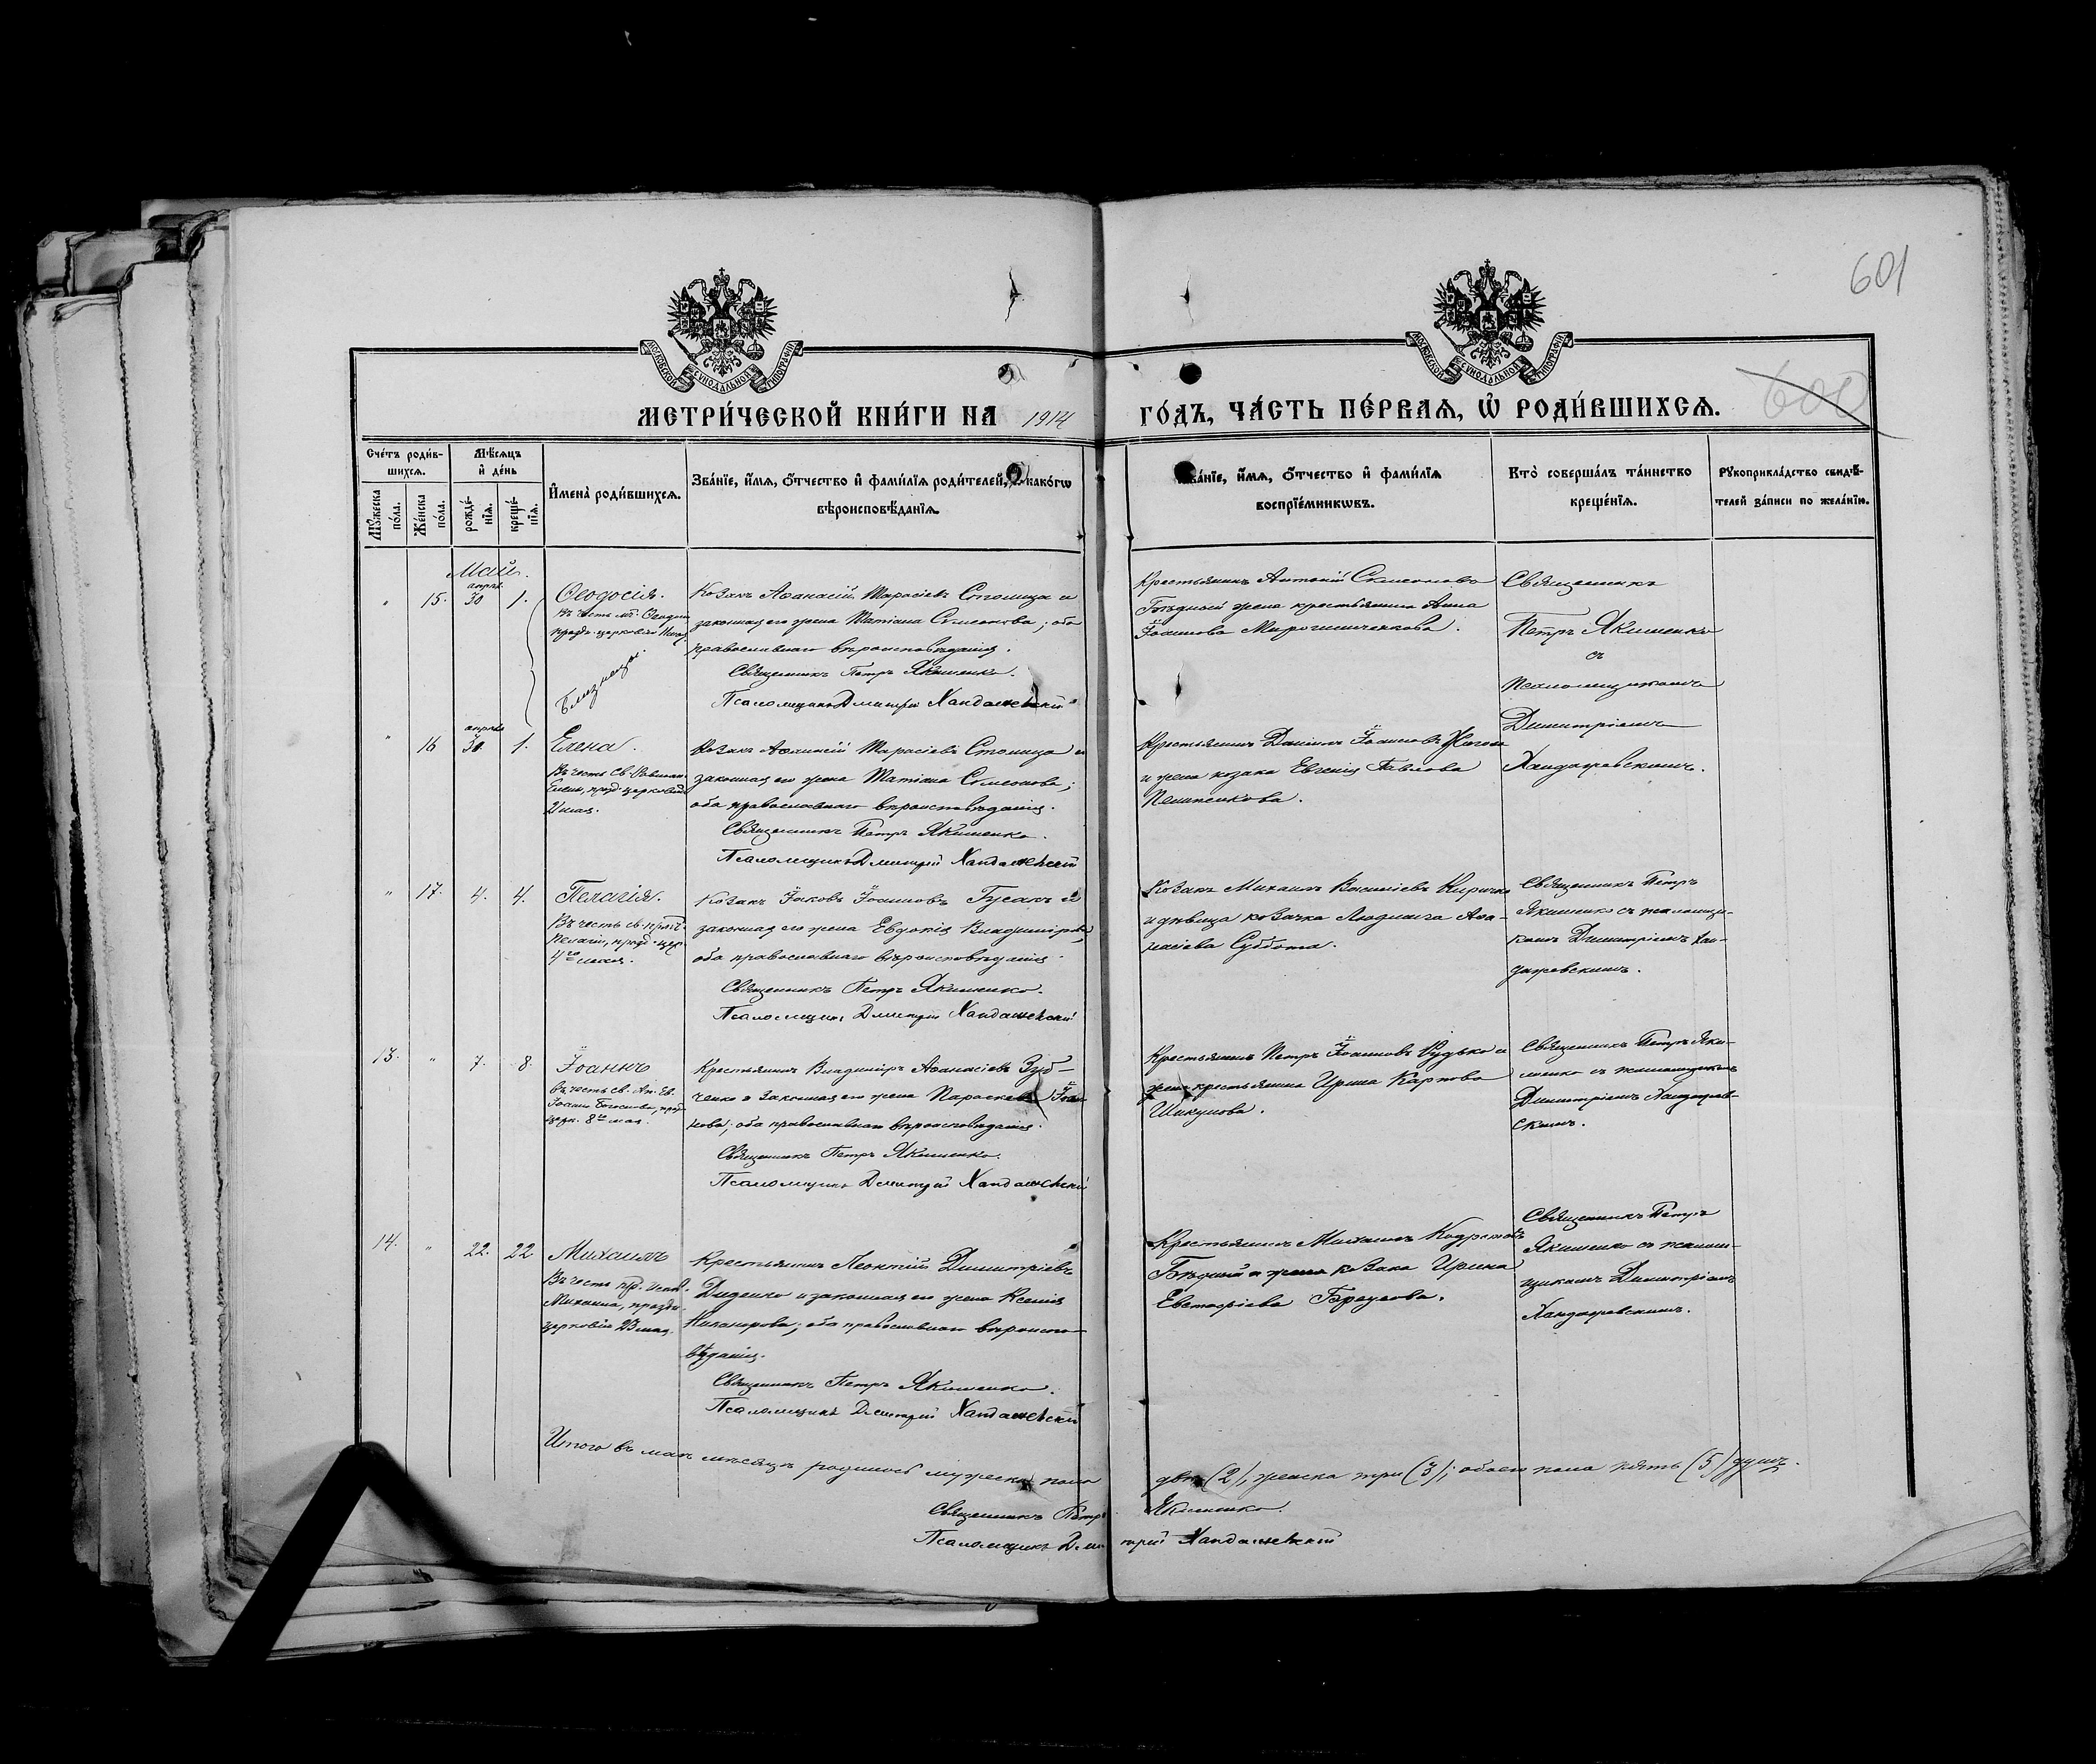 601
600
МОСКОВСКОЙ СѴНОДАЛЬНОЙ ТИПОГРАФІИ
МОСКОВСКОЙ СѴНОДАЛЬНОЙ ТИПОГРАФІИ
МЕТРИ́ЧЕСКОЙ КНИ́ГИ НА 1914 ГО́ДЪ, ЧА́СТЬ ПЕ́РВАЯ, Ѡ҆ РОДИ́ВШИХСЯ.
Сче́тъ роди́в-
шихся.
Мѣ́сяцъ
и҆ де́нь
Мꙋ́жеска
по́ла.
Же́нска
по́ла.
рожде́-
нїя.
креще́-
нїя.
И҆мена̀ роди́вшихся.
Зва́нїе, и҆́мя, ѻ҆́тчество и҆ фами́лїя роди́телей, како́гѡ
вѣроисповѣ́данїя.
Зва́нїе, и҆́мя, ѻ҆́тчество и҆ фами́лїя
воспрїе́мникѡвъ.
Кто̀ соверша́лъ та́инство
креще́нїя.
Рꙋкоприкла́дство свидѣ́-
телей за́писи по жела́нїю.
Май.
" 15. апрѣля 30 1.
Ѳеодосія.
Близнецы.
Козакъ Аѳанасій Тарасіевъ Столица и
законная его жена Татіана Симеонова; оба
православнаго вѣроисповѣданія.
Священникъ Петръ Якименко.
Псаломщикъ Димитрій Хандажевскій
Крестьянинъ Антоній Симеоновъ
Бѣдный жена крестьянина Анна
Іоаннова Мирошниченкова.
Священникъ
Петръ Якименко
съ
Псаломщикомъ
Димитріемъ
Хандажевскимъ.
" 16 апрѣля 30. 1.
Елена.
Въ честь св. Равноап.
Елены, празд. церковію
21 мая.
Козакъ Аѳанасій Тарасіевъ Столица и
законная его жена Татіана Симеонова;
оба православнаго вѣроисповѣданія.
Священникъ Петръ Якименко.
Псаломщикъ Димитрій Хандажевскій
Крестьянинъ Даніилъ Іоанновъ
и жена козака Евгенія Павлова
" 17. 4. 4.
Пелагія.
Въ честь св. прмч.
Пелагіи, празд. цер.
4го мая.
Козакъ Іаковъ Іоанновъ Гусакъ и
законная его жена Евдокія Владимірова,
оба православнаго вѣроисповѣданія.
Священникъ Петръ Якименко.
Псаломщикъ Димитрій Хандажевскій
Козакъ Михаилъ Василіевъ Киричко
и дѣвица козачка Людмила Аѳа-
насіева Суббота.
Священникъ Петръ
Якименко съ псаломщи-
комъ Димитріемъ Хан-
дажевскимъ.
13. " 7. 8.
Іоаннъ
Въ честь св. Ап. Ев.
Іоанна Богослова, праз.
церк. 8го мая.
Крестьянинъ Владиміръ Аѳанасіевъ Зуб-
ченко и законная его жена Параскева Іоан-
нова; оба православнаго вѣроисповѣданія.
Священникъ Петръ Якименко.
Псаломщикъ Димитрій Хандажевскій
Крестьянинъ Петръ Іоанновъ Рудько и
жена крестьянина Ирина Карпова
Шикунова.
Священникъ Петръ Яки-
менко съ псаломщикомъ
Димитріемъ Хандажев-
скимъ.
14. " 22. 22
Михаилъ
Въ честь пр. исп.
Михаила, праздн.
церковію 23 мая.
Крестьянинъ Леонтій Димитріевъ
Диденко и законная его жена Ксенія
Никанорова; оба православнаго вѣроиспо-
вѣданія.
Священникъ Петръ Якименко.
Псаломщикъ Димитрій Хандажевскій
Крестьянинъ Михаилъ Кодратовъ
Бѣдный и жена козака Ирина
Евстафіева
Священникъ Петръ
Якименко съ псалом-
щикомъ Димитріемъ
Хандажевскимъ.
Итого въ маѣ мѣсяцѣ родилось мужеска пола два (2), женска три (3); обоего пола пять (5) душъ.
Священникъ Петръ Якименко.
Псаломщикъ Димитрій Хандажевскій